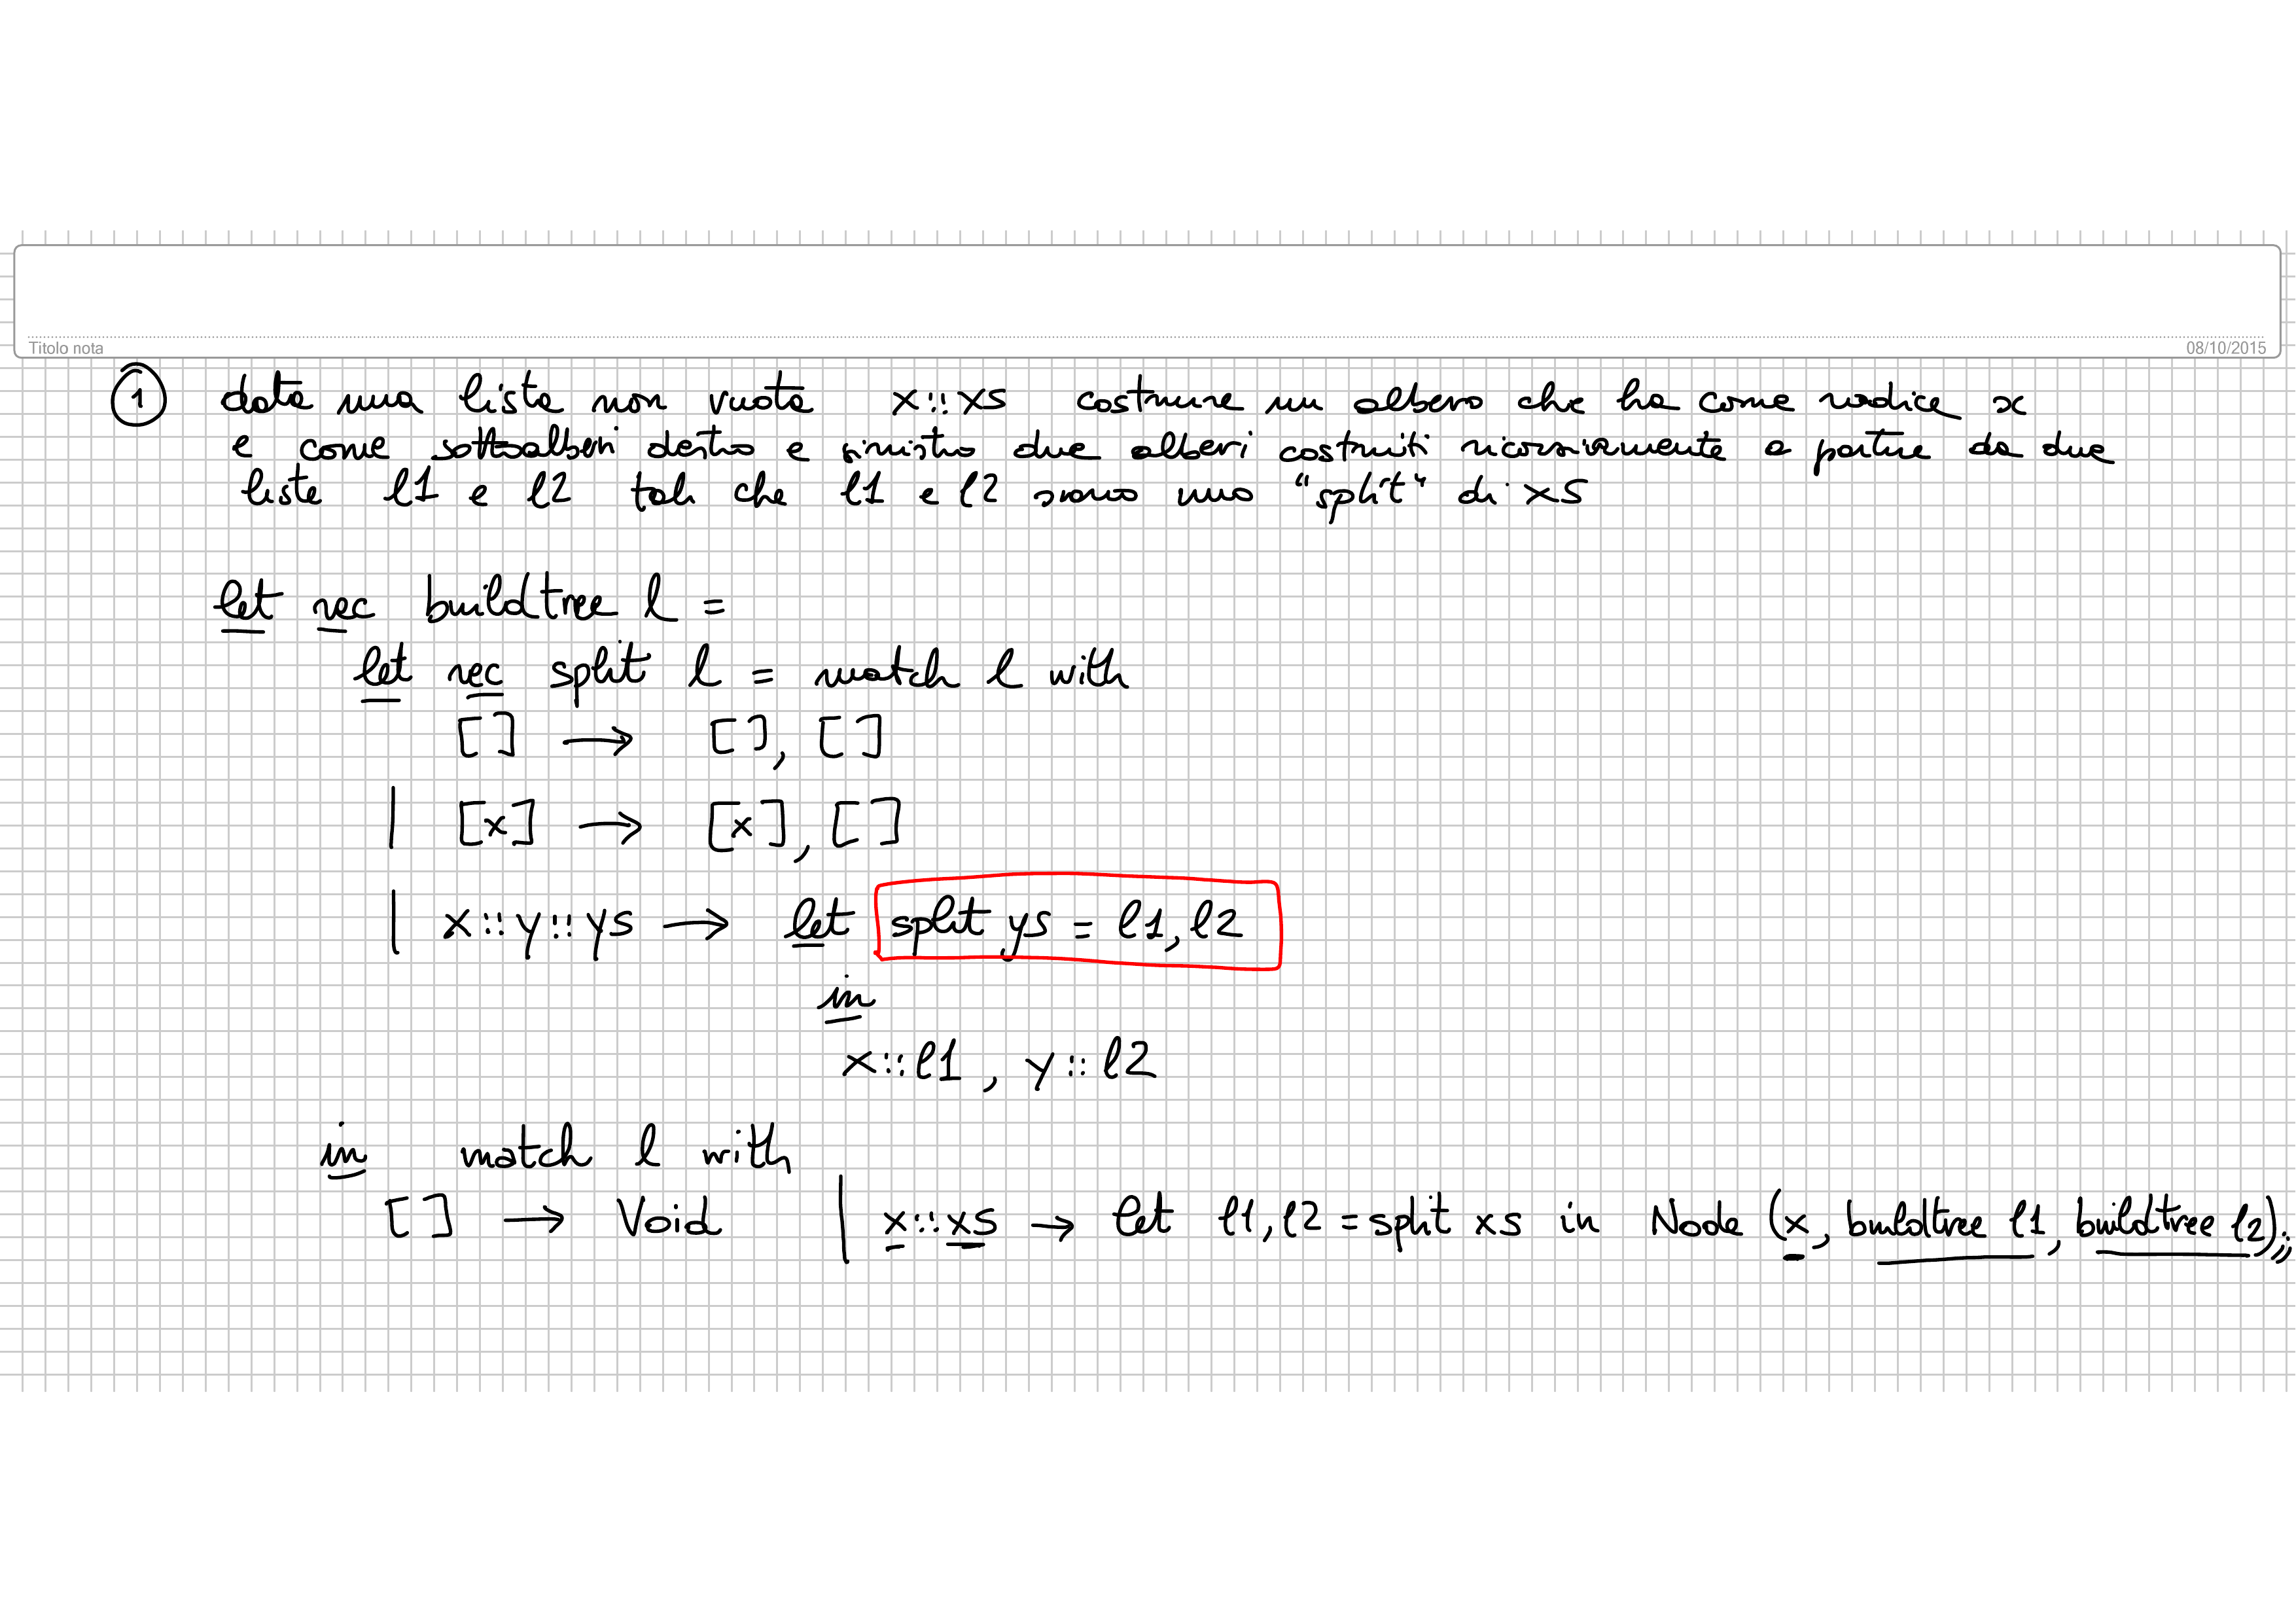 Titolo nota
08/10/2015
1 data una lista non vuota x::xs costruire un albero che ha come radice x
e come sottoalberi destro e sinistro due alberi costruiti ricorsivamente a partire da due
liste l1 e l2 tali che l1 e l2 siano uno "split" di xs
let rec buildtree l =
let rec split l = match l with
[] → [], []
| [x] → [x], []
| x::y::ys → let split ys = l1, l2
in
x::l1, y::l2
in match l with
[] → Void | x::xs → let l1, l2 = split xs in Node (x, buildtree l1, buildtree l2);;